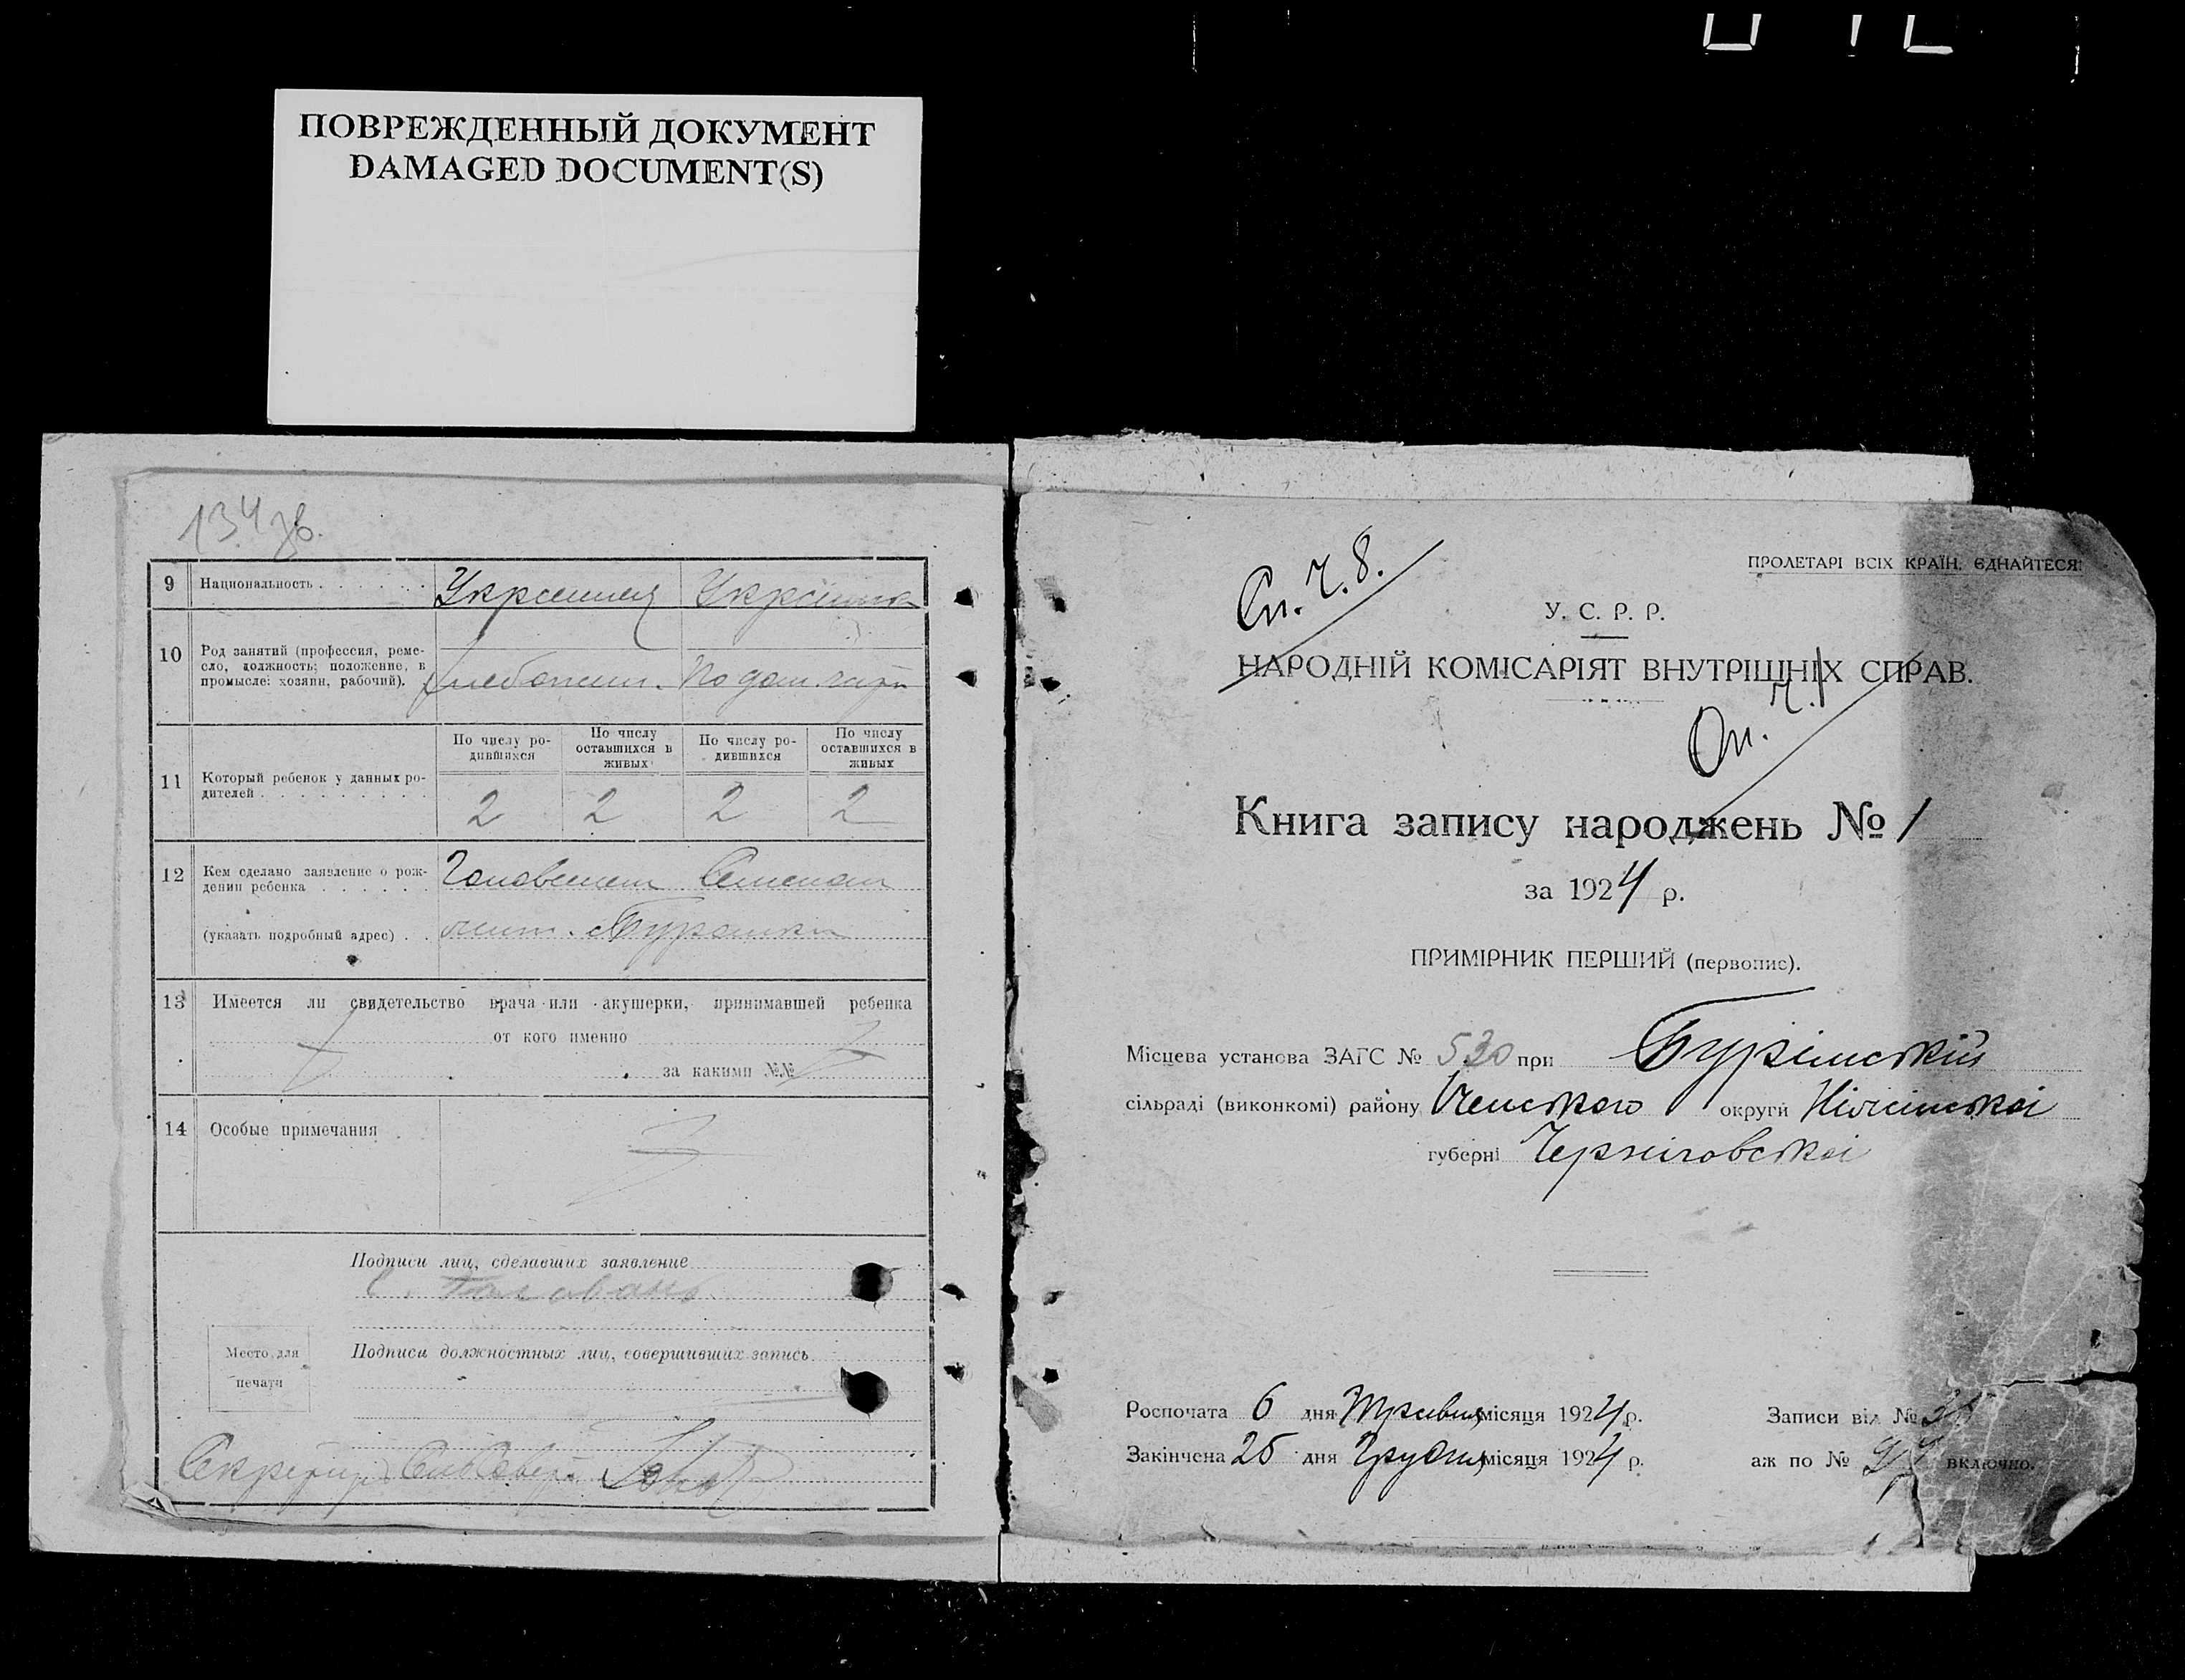 ПОВРЕЖДЕННЫЙ ДОКУМЕНТ
DAMAGED DOCUMENT(S)
134 зв.
9 Национальность . . . . . . . Українец Українка
10 Род занятий (профессия, реме-
сло, должность; положение, в
промысле: хозяин, рабочий). хлебопаш. по дом. хазн
11 Который ребенок у данных ро-
дителей . . . . . . . . .
По числу ро-
дившихся
По числу
оставшихся в
живых
По числу ро-
дившихся
По числу
оставшихся в
живых
2 2 2 2
12 Кем сделано заявление о рож-
дении ребенка . . . . . . Головенем Семеном
(указать подробный адрес) . . жит. с Буромки
13 Имеется ли свидетельство врача или акушерки, принимавшей ребенка
от кого именно
за какими №№
14 Особые примечания
Подписи лиц, сделавших заявление
С. Головань
Место для
печати
Подписи должностных лиц, совершивших запись
Секретар СельСовета
ПРОЛЕТАРІ ВСІХ КРАЇН, ЄДНАЙТЕСЯ!
Сп. Ч. 8.
У. С. Р. Р.
НАРОДНІЙ КОМІСАРІЯТ ВНУТРІШНІХ СПРАВ.
Оп. Ч. 1
Книга запису народжень № 1
за 1924 р.
ПРИМІРНИК ПЕРШИЙ (первопис).
Місцева установа ЗАГС № 530 при Бурімській
сільраді (виконкомі) району Іченського округи Ніжинської
губерні Черніговської
Роспочата 6 дня Травня місяця 1924 р.
Закінчена 26 дня Грудня місяця 1924 р.
Записи від №
аж по № включно.